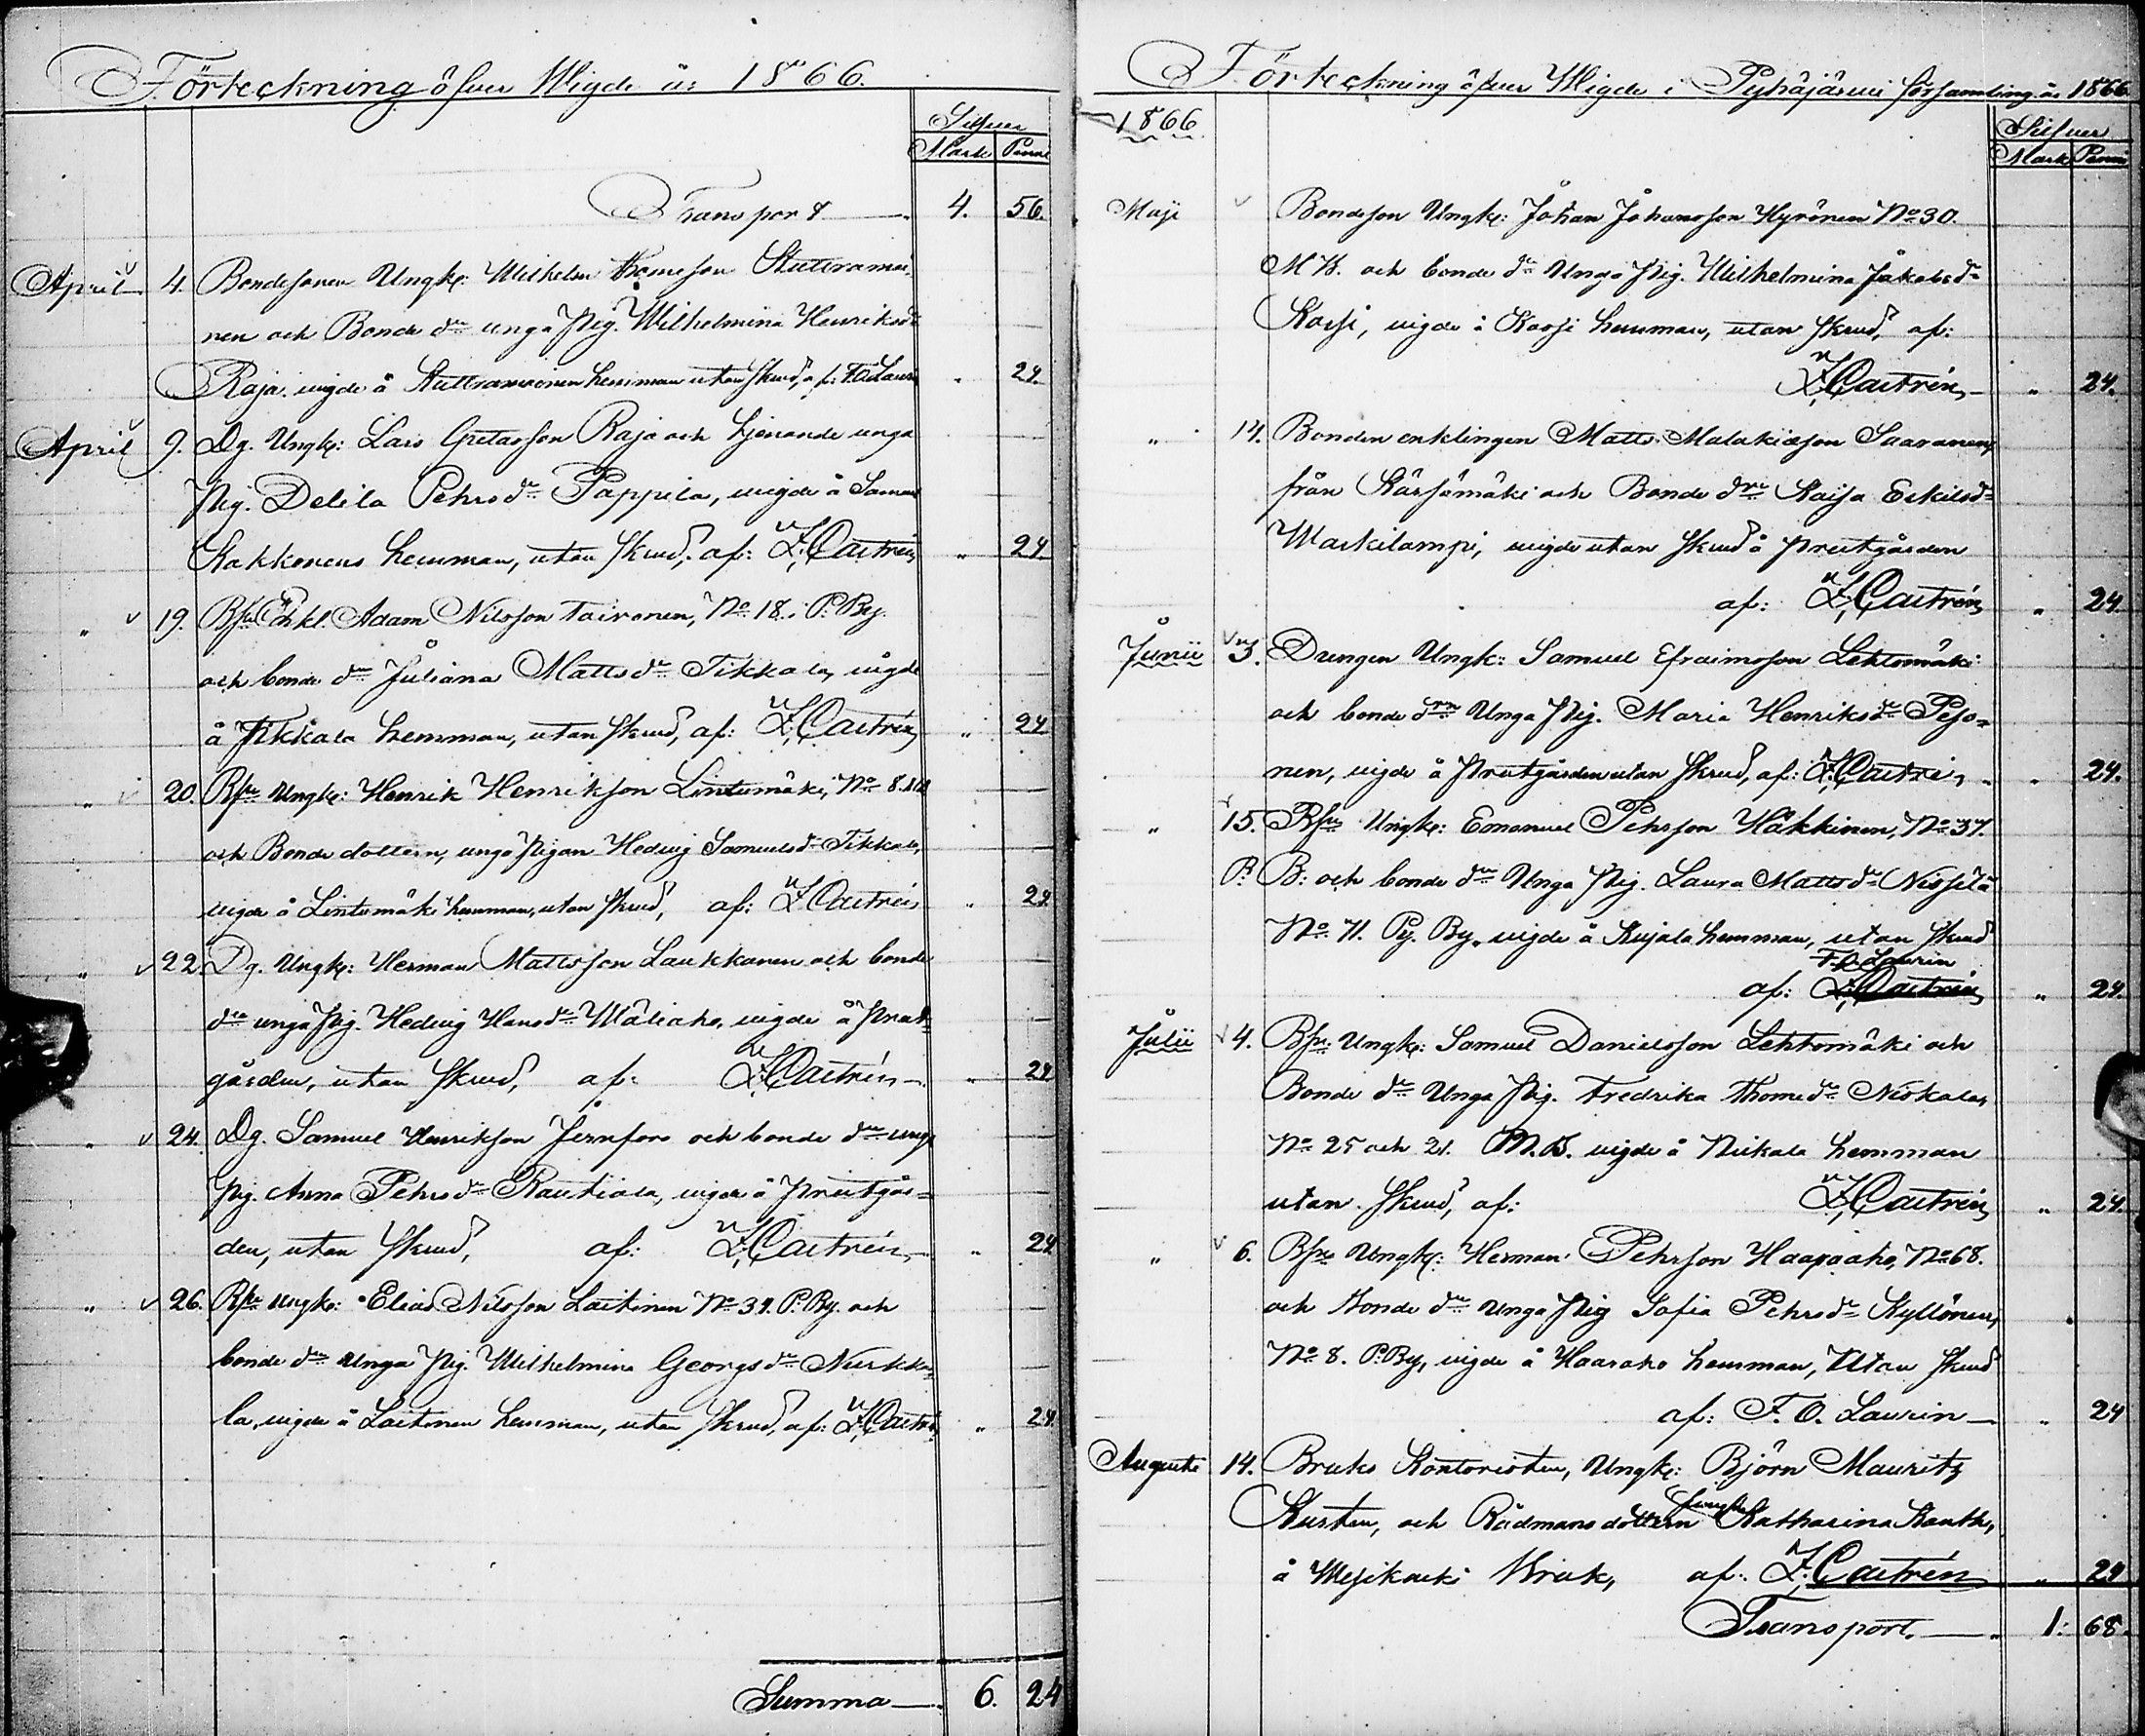 Förteckning öfver Wigde år 1866.
Silfver
Mark Penni
Transport 4. 56.
April 4. Bondesonen Ungk: Wilhelm Thomeson Kuttramoi-
nen och Bonde dr unga Pig. Wilhelmina Henriksdr
Raja, vigde å Kuttramoinen hemman utan skrud, af: F.O. Laurin " 24.
April 9. Dg. Ungk: Lars Gretasson Raja och tjenande unga
Pig. Delila Pehrsdr Pappila, vigde å Samuel
Kakkonens hemman, utan skrud, af: Z. Castrén " 24.
" 19. Bsn Enkl. Adam Nilsson Taivonen, No 18. P. By.
och bonde dr Juliana Mattsdr Tikkala, vigde
å Tikkala hemman, utan skrud, af: Z. Castrén " 24
" 20. Bsn Ungk: Henrik Henrikson Lintumäki, No 8.
och Bonde dottern, unga Pigan Hedvig Samuelsdr Tikkala,
vigde å Lintumäki hemman, utan skrud, af: Z. Castrén " 24.
" 22. Dg. Ungk: Herman Mattsson Laukkanen och bonde
dr unga Pig. Hedvig Hansdr Wäliaho, vigde å Prest-
gården, utan skrud, af: Z. Castrén " 24
" 24. Dg. Samuel Henrikson Jernfors och bonde dr unga
Pig. Anna Pehrsdr Rautiola, vigde å Prestgår=
den, utan skrud, af: Z. Castrén " 24
" 26. Bsn Ungk: Elias Nilsson Laitinen No 39. P. By. och
bonde dr Unga Pig. Wilhelmina Georgsdr Nurkka-
la, vigde å Laitinen hemman, utan skrud, af: Z. Castrén " 24.
Summa 6. 24
Förteckning öfver Wigde i Pyhäjärvi församling år 1866
1866
Silfver
Mark Penni
Maji Bondeson Ungk: Johan Johansson Hyvönen No 30.
M B. och bonde dr Unga Pig. Wilhelmina Jakobsdr
Korsi, vigde å Korsi hemman, utan skrud, af:
Z. Castrén " 24.
" 14. Bonden enklingen Matts Malakiasson Saaranen,
från Kärsämäki och Bonde dr Kaisa Eskilsdr
Waskilampi, vigde utan skrud å prestgården
af: Z. Castrén " 24
Junii 3. Drengen Ungk: Samuel Efraimsson Lehtomäki
och bonde dr Unga Pig. Maria Henriksdr Peso=
nen, vigde å Prestgården utan skrud, af: Z. Castrén " 24.
" 15. Bsn Ungk: Emanuel Pehrson Häkkinen, No 37.
P. B: och bonde dr Unga Pig. Laura Mattsdr Nissilä
No 71. Py. By. vigde å Kujala hemman, utan skrud
F.O. Laurin
af: Z. Castrén " 24.
Julii 4. Bsn. Ungk: Samuel Danielsson Lehtomäki och
Bonde dr Unga Pig. Fredrika Thomedr Niskala,
No 25 och 21. M.B. vigde å Niskala hemman
utan skrud, af: Z. Castrén " 24.
" 6. Bsn Ungk: Herman Pehrson Haapaaho, No 68.
och Bonde dr Unga Pig Sofia Pehrsdr Kyllönen,
No 8. P. By, vigde å Haaraho hemman, Utan skrud
af: F. O. Laurin " 24
Augusti 14. Bruks Kontoristen, Ungk: Björn Mauritz
Kursten, och Rådmans dottern Katharina Kanth,
å Wesikoski Bruk, af: Z. Castrén " 24
Transport. 1: 68.